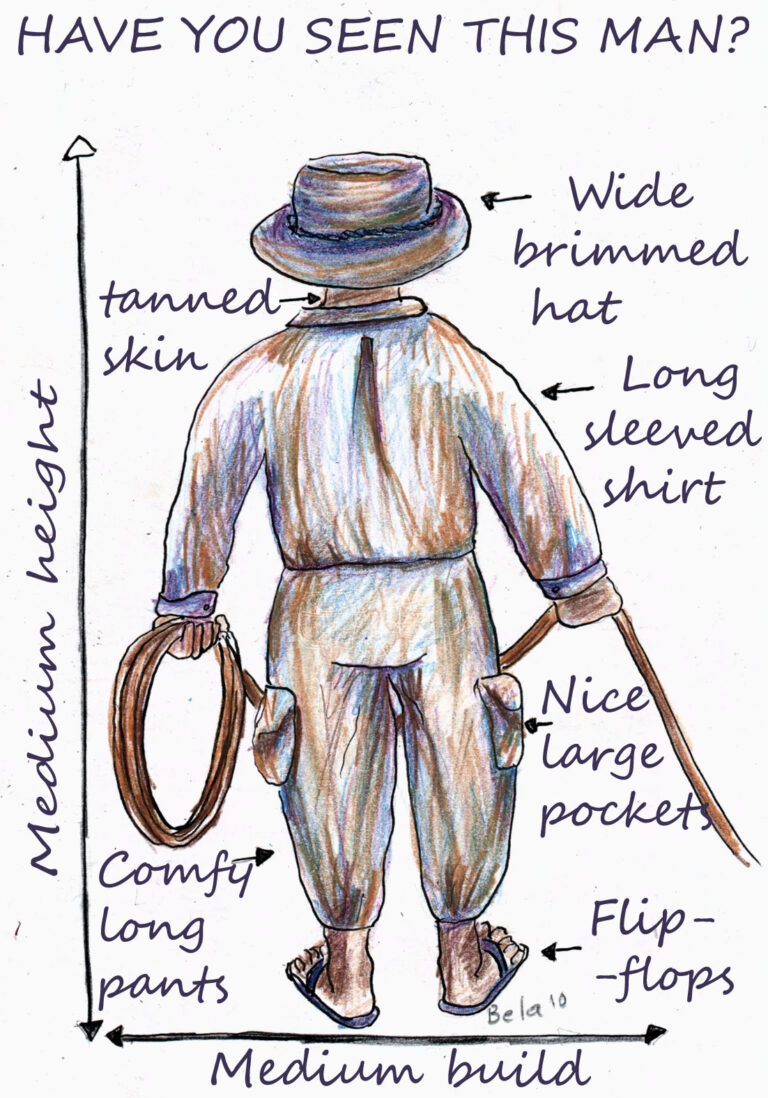 HAVE YOU SEEN THIS MAN?
Wide
brimmed
hat
tanned
skin
Long
sleeved
shirt
Medium height
Nice
large
pockets
Comfy
long
pants
Flip-
-flops
Bela '10
Medium build